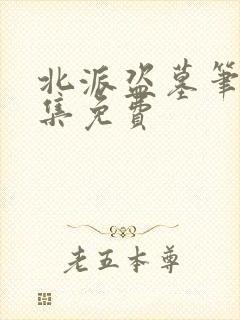 北派盗墓笔
集免费
老五本尊